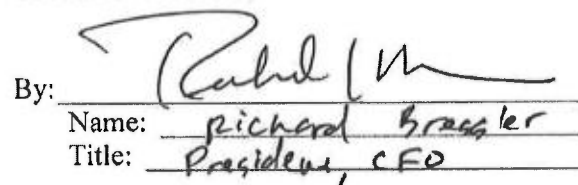 By:
Name: Richard Bressler
Title: President, CFO